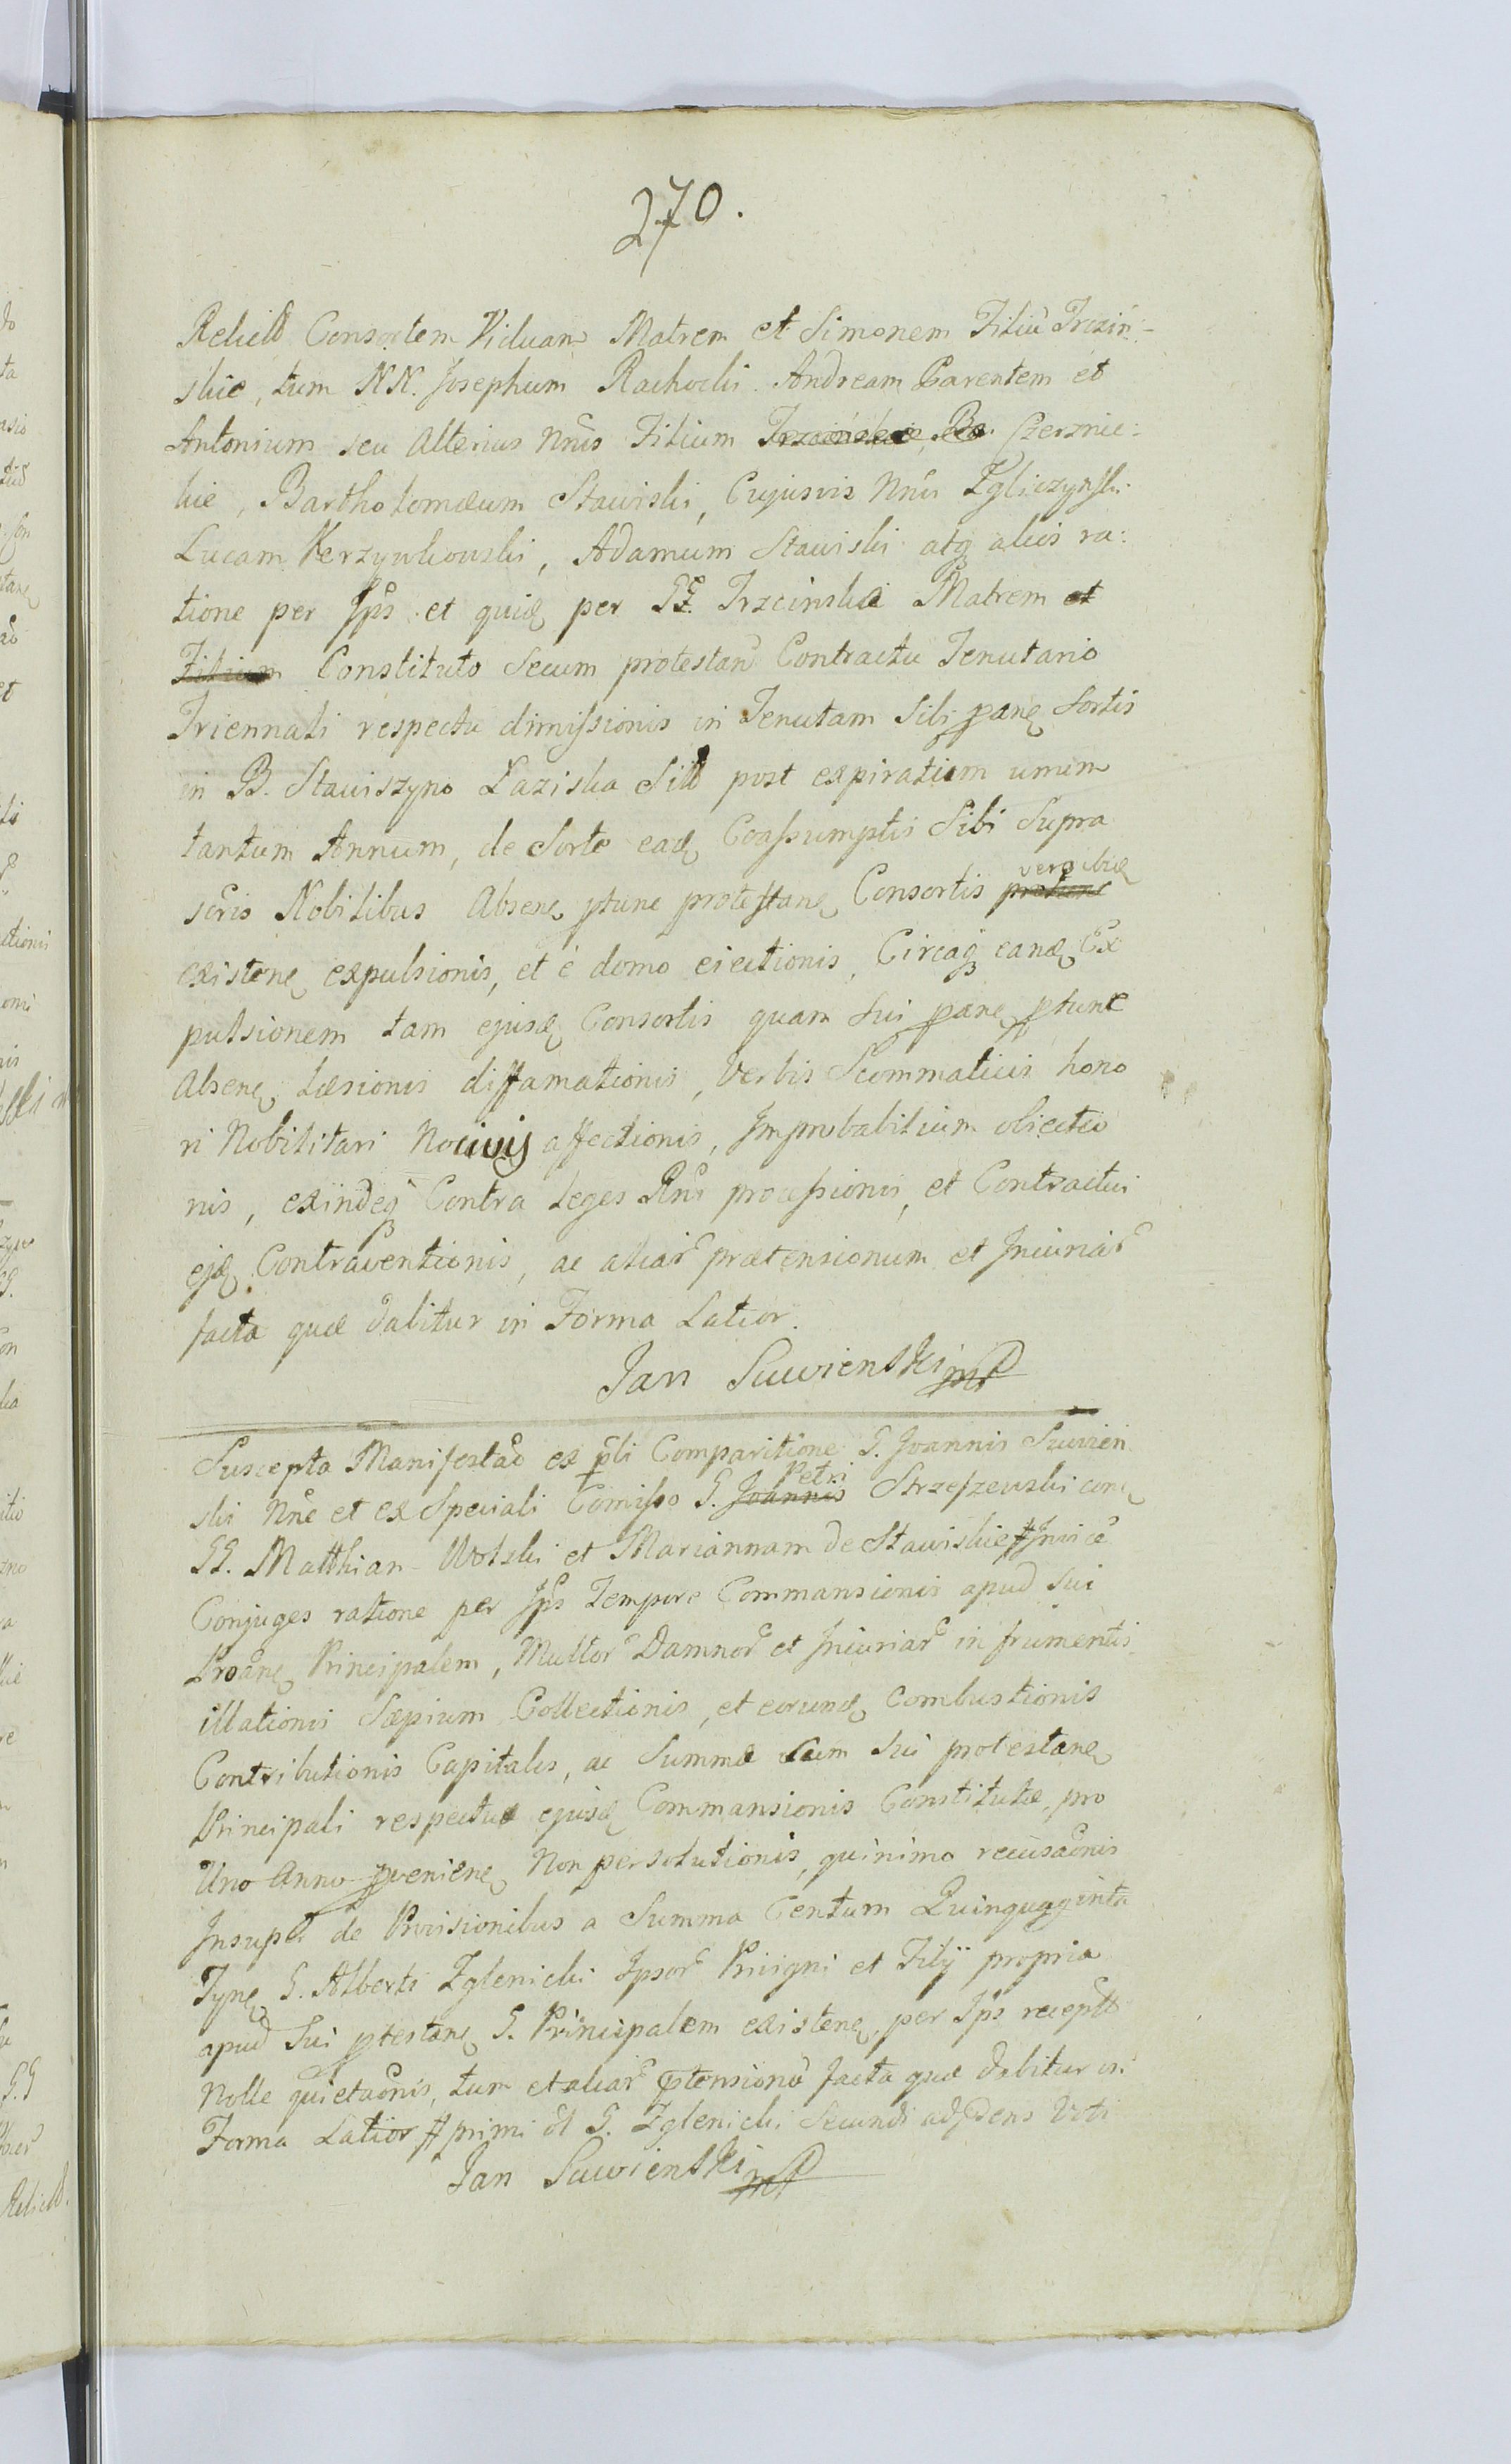 270.
Relict Consortem Viduam Matrem et Simonem Filiū Trzciń-
skie, tum NN. Josephum Rachocki Andream Parentem et
Antonium seu Alterius Nn̄is Filium Trzcińskie, Ba Czernie:
kie, Bartholomæum Stawiski, Cujusvis Nn̄is Zgliczyński
Lucam Kerzywkowski, Adamum Stawiski atq alios ra:
tione per Ip̄s et quid per GG. Trzcinskæ Matrem et
Filium Constituto Secum protestan Contractu Tenutario
Triennali respectu dimissionis in Tenutam Sibi pane Sortis
in B. Stawiszyno Łaziska Sitt post expiratium unum
tantum Annum, de Sorte ead Coassumptis Sibi Supra
scris Nobilibus Absene ptunc protestane Consortis
veribus
existene expulsionis, et é domo eiectionis, Circaq eand Ex
pulsionem tam ejusd Consortis quam Sui pane ptunc
Absene Læsionis diffamationis, Verbis Scommaticis hono
ri Nobilitari Nocivis affectionis, Improbabilium obiectio
nis, exindeq Contra Leges Rni processionis, et Contractui
ejd Contraventionis, ac aliar prætensionum et Iniuriar
facta quæ dabitur in Forma Latior.
Jan Suwienski mp
Suscepta Manifestao ex pli Comparitione G. Joannis Suwien
ski Nne et ex Speciali Comisso G. Joannis Strzeszewski con
Petri
GG. Matthian Wolski et Mariannam de Stawiskie Invice
Conjuges ratione per Ip̄s Tempore Commansionis apud Sui
Proane Principalem, Multor Damnor et Iniuriar in frumentis
illationis Sæpium Collectionis, et eorund Combustionis
Contributionis Capitalis, ac Summæ cum Sui protestane
Principali respectu ejusd Commansionis Constitutæ, pro
Uno Anno pveniene Non persolutionis, quinimo recusaonis
Insuper de Provisionibus a Summa Centum Quinquaginta
Tyne G. Alberti Zglenicki Ipsor Privigni et Filij propria
apud Sui ptestane G. Principalem existene per Ip̄s recept
Nolle quietaonis, tum et aliar ptensionū facta quæ dabitur in
Forma Latior # primi dt G. Zglenicki Secundi adpdens Voti
Jan Suwienski mp